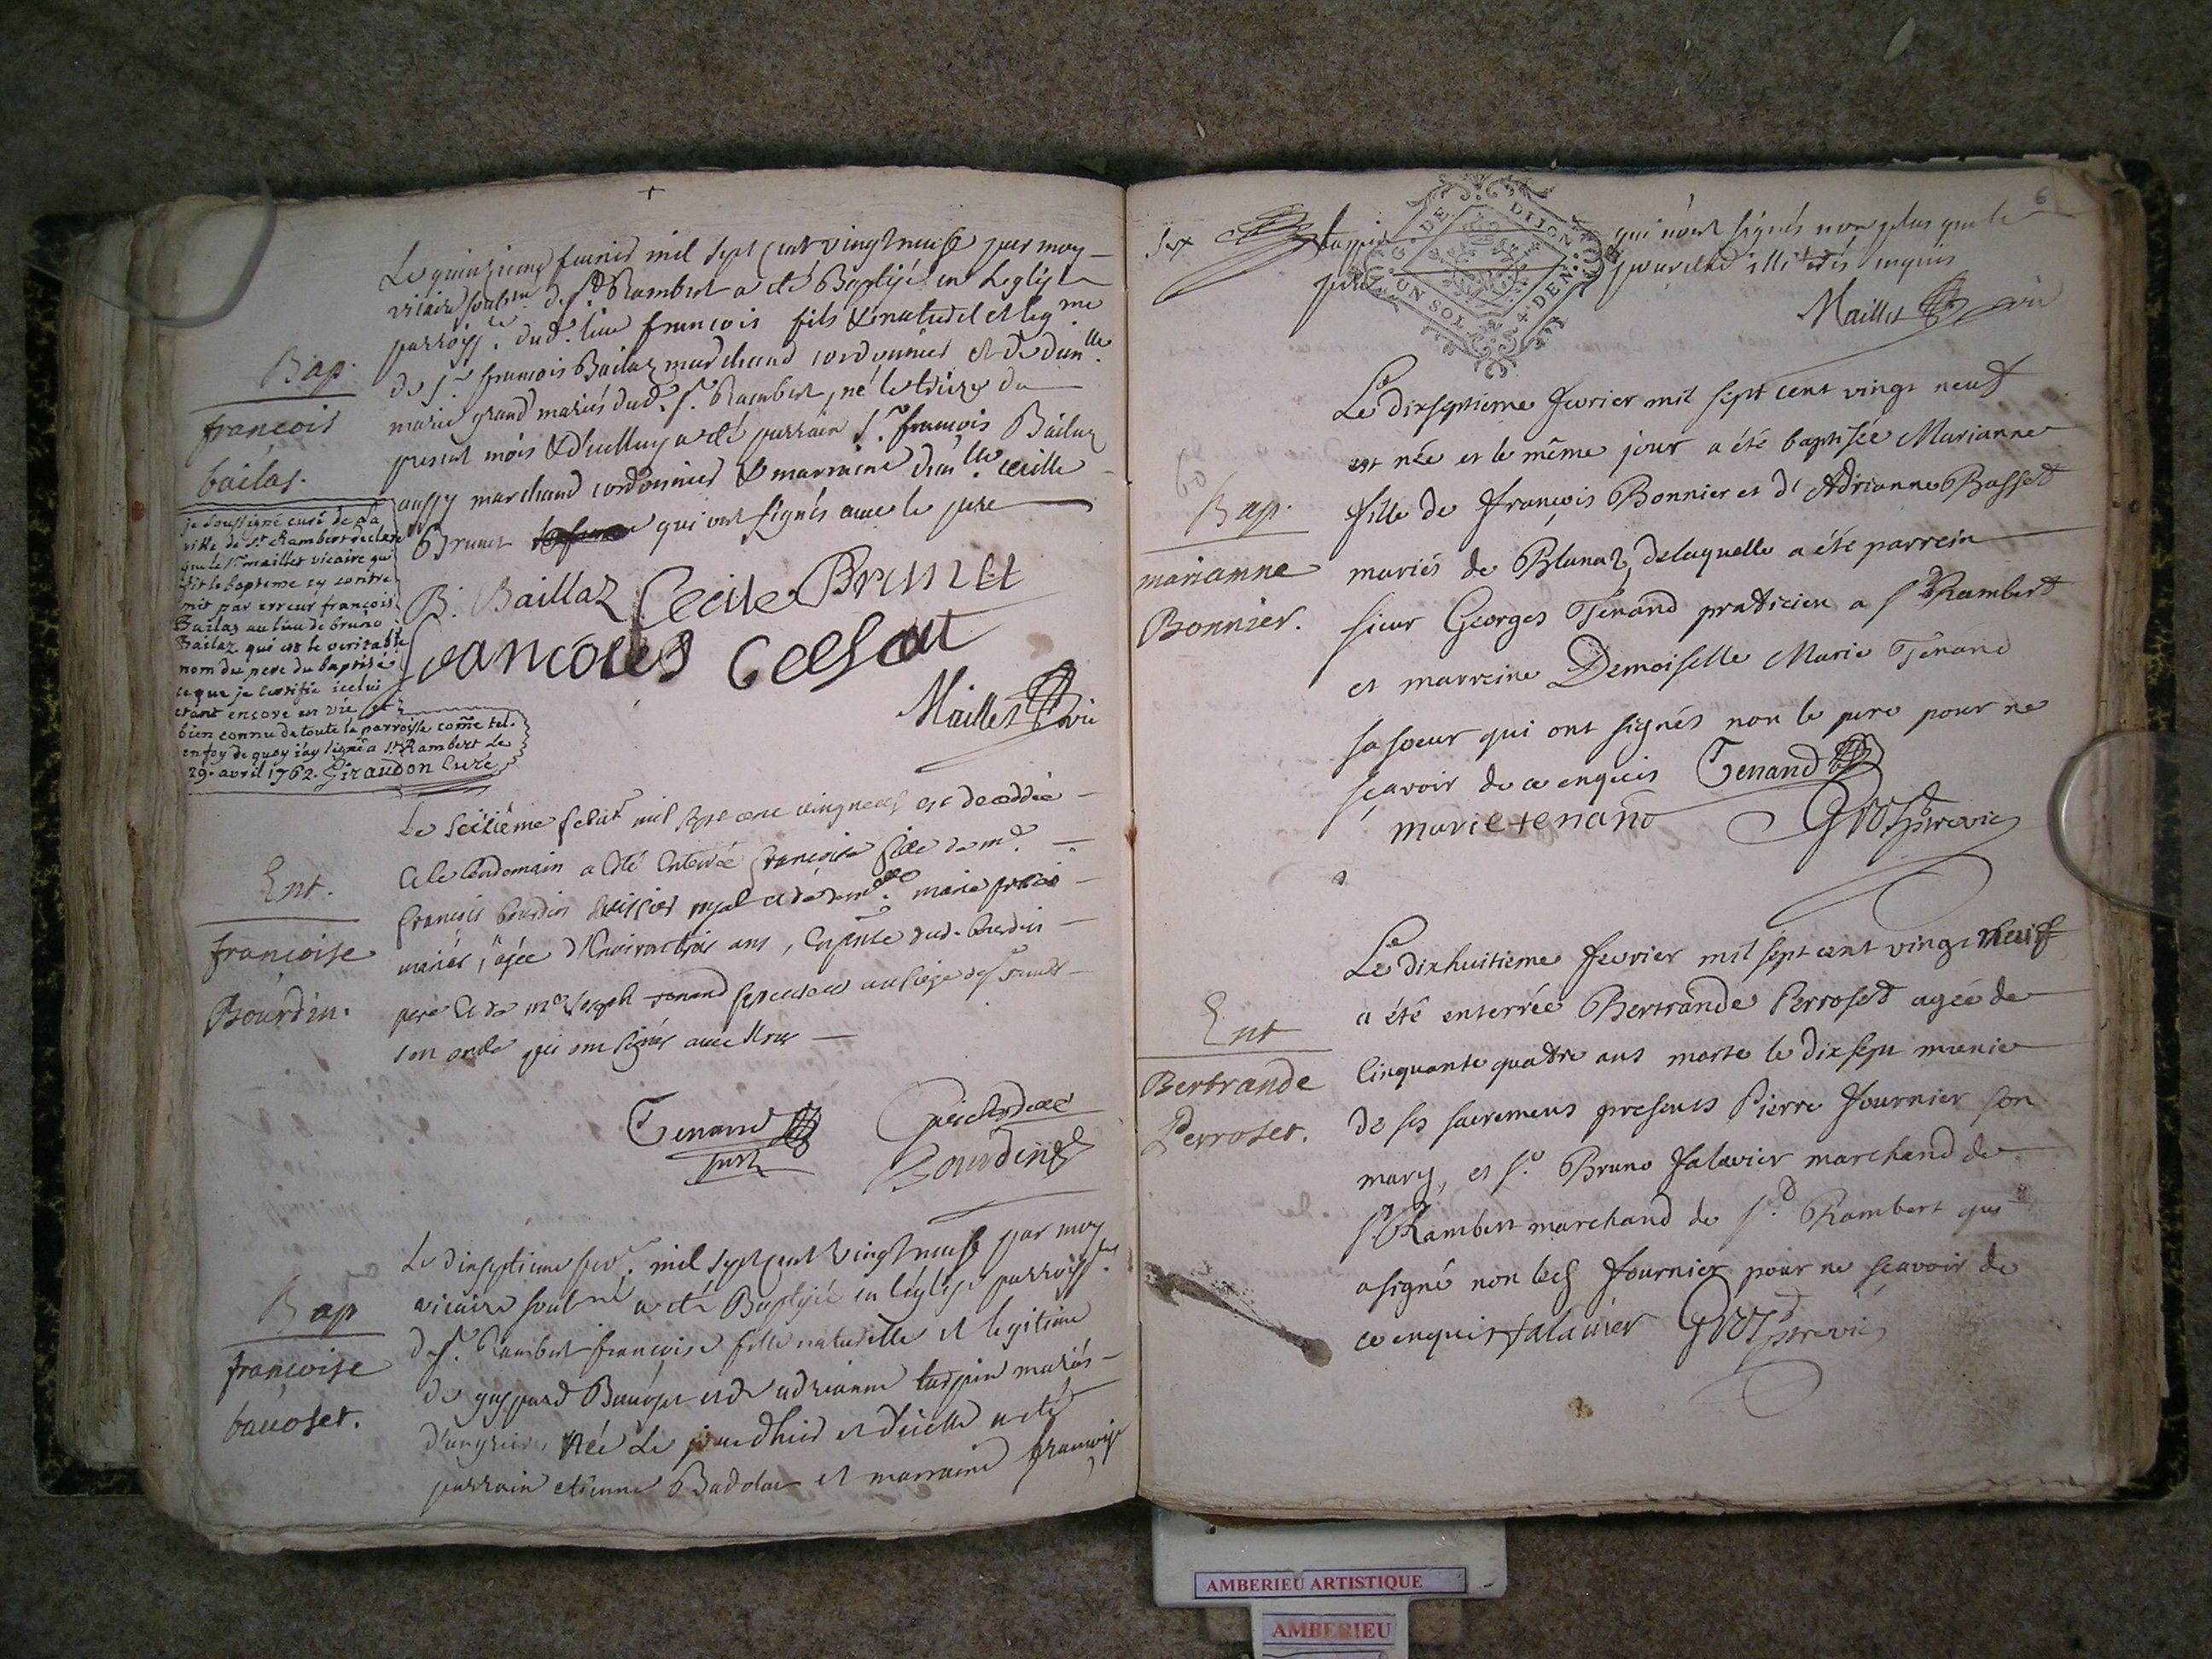 Le quinzieme fevrier mil sept cent vingt neuf par moy
vicaire soubsné de St Rambert a été Baptisé en leglise
parroisse. dud. lieu francois fils & naturel et legme
de Sr. francois Bailaz marchand cordonnier et de damlle.
marie grand mariés dud. St. Rambert, né le treize du
present mois & d'icelluy a été parrain Sr. francois Bailaz
aussy marchand cordonnier & marraine damlle. cecille
Brunet qui ont signés avec le pere
Bap.
francois
bailas.
je soussigné curé de la
ville de St Rambert declare
que le Sr maillet vicaire qui
fit le bapteme cy contre
mit par erreur francois
Bailaz au lieu de bruno
Bailaz qui est le veritable
nom du pere du baptisé
ce que je certifie icelui
etant encore en vie et
bien connu de toute la parroisse come tel.
en foy de quoy j'ay signé a St Rambert le
29. avril 1762. Giraudon curé
B. Baillaz Cecile Brunet
Maillet vic
Le seizième febvr mil sept cent vingt neuf est decedée
et le lendemain a été enterrée francoise fille de mr.
francois bourdin huissier royal et de demlle. marie
mariés, agée d'environ trois ans, en presence dud. bourdin
pere et de me Joseph tenand procureur au siege de St rambt
son oncle qui ont signés avec nous
Ent.
francoise
Bourdin.
Tenand
Bourdin
Le dixseptieme fevr. mil sept cent vingt neuf par moy
vicaire soubsné a été Baptisée en léglise parroissle.
de St. Rambert francoise fille naturelle et legitime
de gaspard Bauoset et de adrianne turpin mariés
née le jour dhier et d'icelle a été
parrain etienne Badolat et marraine francoise
Bap
francoise
bauoset.
6
qui n'ont signés non plus que le
pere illiterés enquis
G. DE DIJON
UN SOL 4 DEN.
Maillet vic
Le dixseptieme fevrier mil sept cent vingt neuf
est née et le même jour a été baptisée Marianne
fille de francois Bonnier et d'Adrianne Basset
mariés de Blanaz, delaquelle a été parrein
sieur Georges Tenand praticien a St Rambert
et marreine Demoiselle Marie Tenand
sa soeur qui ont signés non le pere pour ne
sçavoir de ce enquis Tenand
marie tenand
Bap.
marianne
Bonnier.
Le dixhuitieme fevrier mil sept cent vingt neuf
a été enterrée Bertrande Perroset agée de
Cinquante quatre ans morte le dix sept munie
de ses sacremens presents Pierre fournier son
mary, et Sr. Bruno falavier marchand de
St Rambert marchand de St. Rambert qui
a signé non led fournier pour ne sçavoir de
ce enquis falavier
Ent
Bertrande
Perroset.
AMBERIEU ARTISTIQUE
AMBERIEU